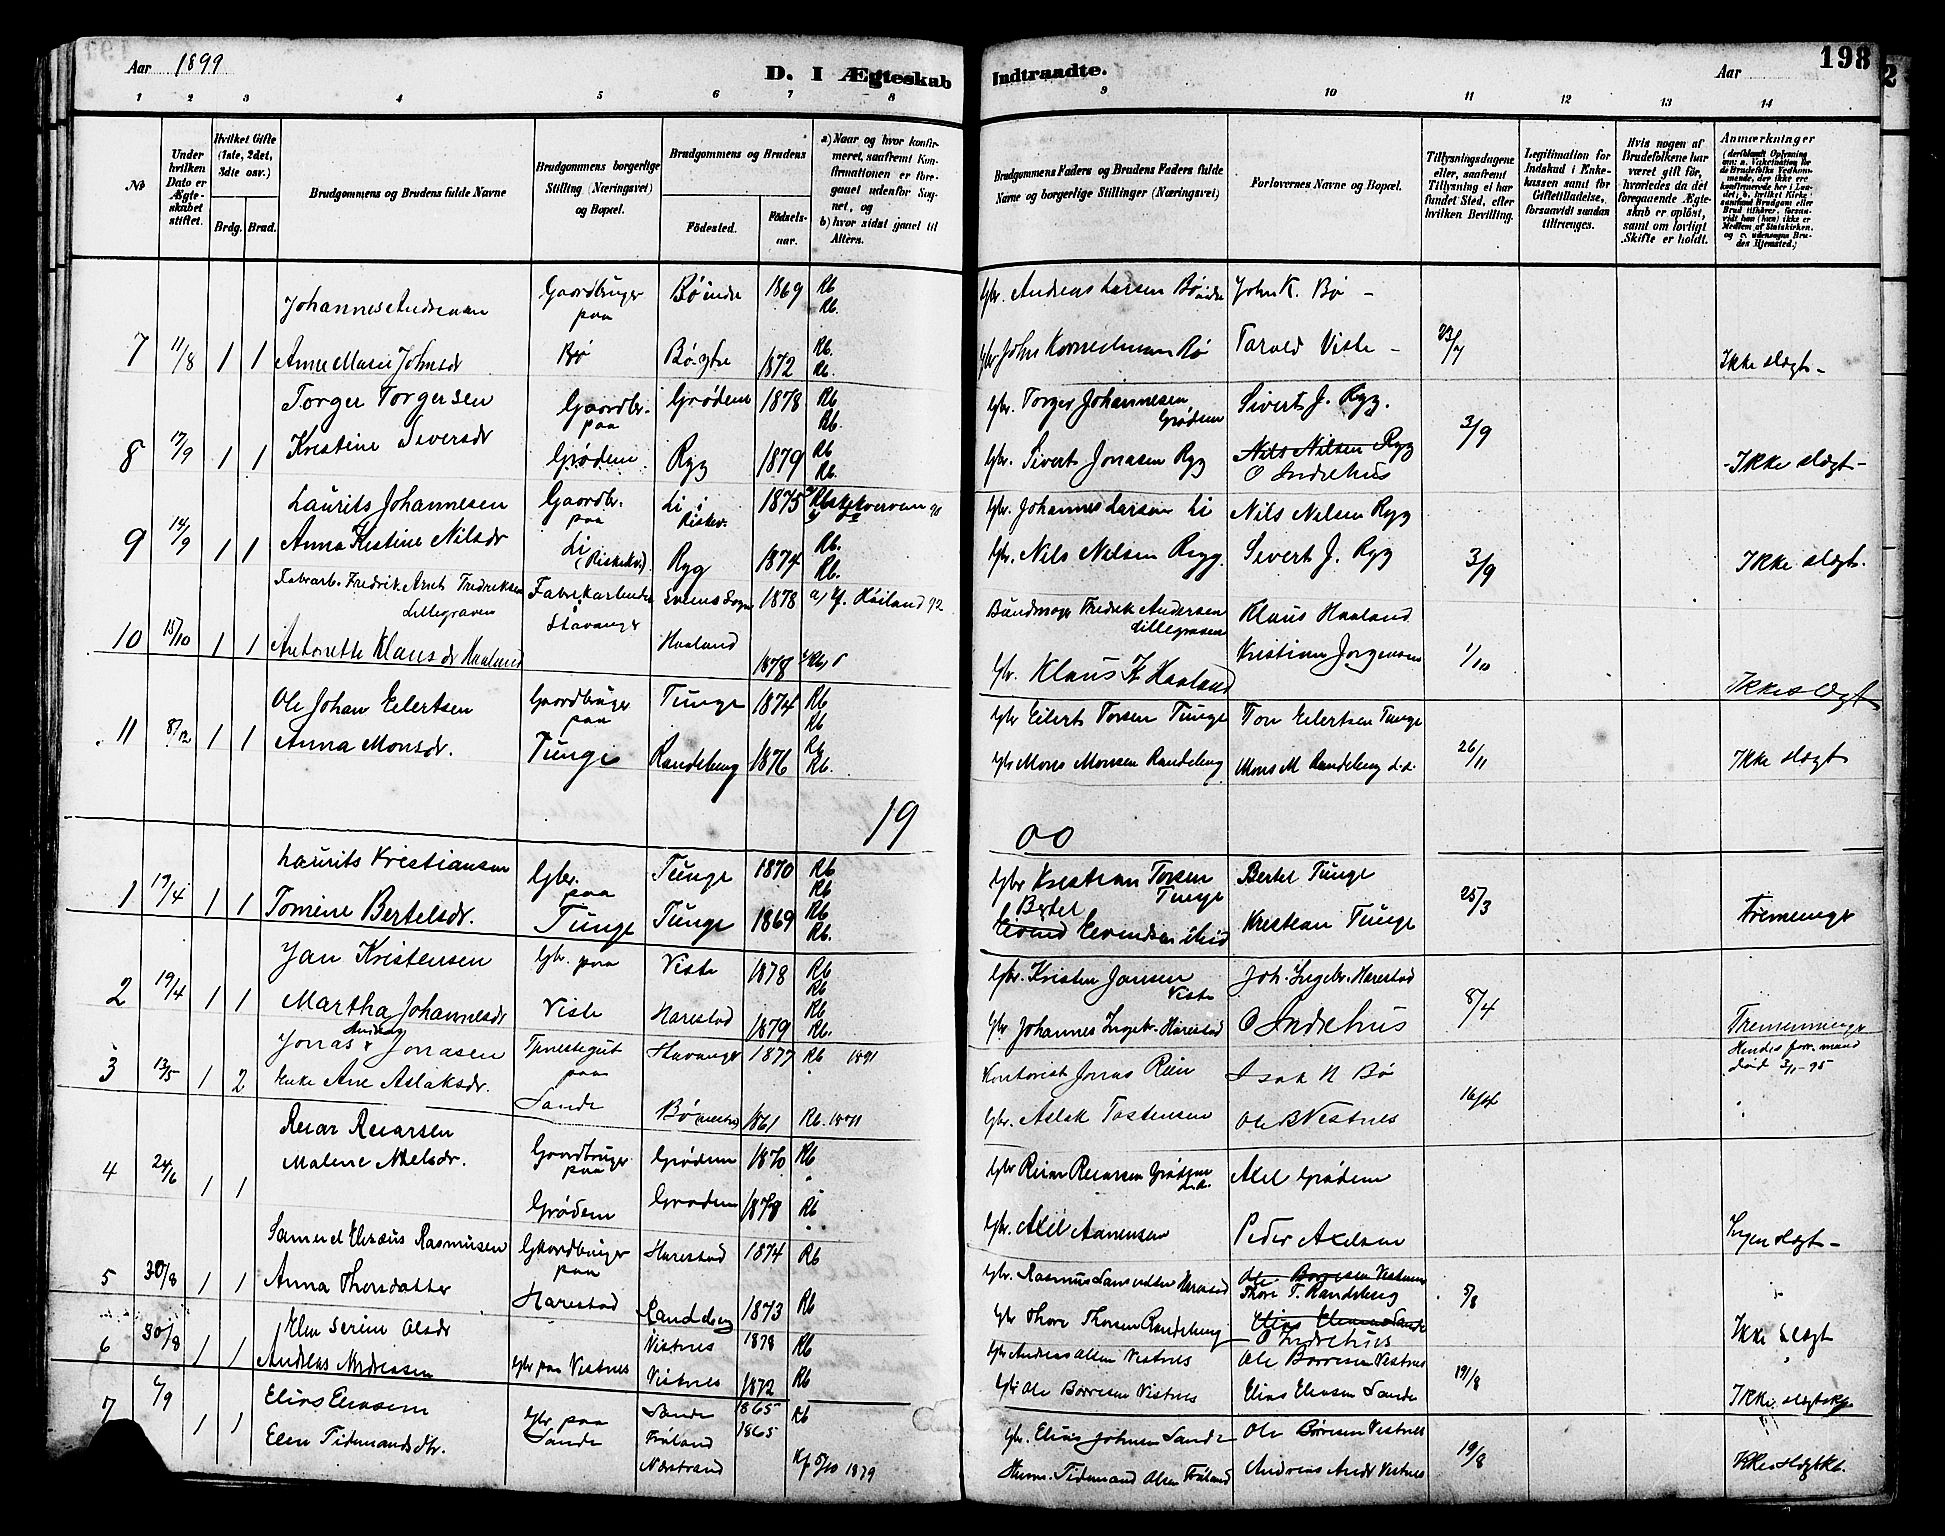 Aar 1899
D. I Ægteskab Indtraadte.
Aar
198
1 2 3 4 5 6 7 8 9 10 11 12 13 14
No
Under hvilken Dato er Ægteskabet stiftet.
Hvilket Gifte (1ste, 2det, 3die osv.)
Brdg. Brud.
Brudgommens og Brudens fulde Navne
Brudgommens borgerlige Stilling (Næringsvei) og Bopæl.
Brudgommens og Brudens
Fødested.
Fødselsaar.
a) Naar og hvor konfirmeret, saafremt Konfirmationen er foregaaet udenfor Sognet, og
b) hvor sidst gaaet til Alters.
Brudgommens Faders og Brudens Faders fulde Navne og borgerlige Stillinger (Næringsvei)
Forlovernes Navne og Bopæl.
Tillysningsdagene eller, saafremt Tillysning ei har fundet Sted, efter hvilken Bevilling.
Legitimation for Indskud i Enkekassen samt for Giftetilladelse, forsaavidt saadan tiltrænges.
Hvis nogen af Brudefolkene har været gift før, hvorledes da det foregaaende Ægteskab er opløst, samt om lovligt Skifte er holdt.
Anmærkninger
7 11/8 1 1
Johannes Andreasen
Anne Marie Johnsdr
Gaardbruger paa Bø
Bø indre 1869 Rb Rb.
Bø ytre 1872 Rb. Rb.
Gbr. Andreas Larsen Bø indre
Gbr John Korneliussen Bø
John K. Bø -
Tarald Viste -
23/7
Ikke slægt -
8 17/9 1 1
Torger Torgersen
Kristine Siversdr
Gaardbr. paa Grødem
Grødem 1878 Rb Rb.
Ryg 1879 Rb Rb.
Gbr. Torger Johannesen Grødem
Gbr. Sivert Jonasen Ryg
Sivert J. Ryg.
Nils Nilsen Ryg
O Indrehus
3/9
- Ikke slægt -
9 14/9 1 1
Laurits Johannesen
Anna Kristine Nilsdr
Gaardbr. paa Li (Riskekv.)
Li i Riskev. 1875
Ryg 1874 Rb. Rb.
Gbr. Johannes Larsen Li
Gbr. Nils Nilsen Ryg.
Nils Nilsen Ryg
Sivert J. Ryg
3/9
Ikke slægt.
10 15/10 1 1
Fabrarb. Fredrik Arnt Fredriksen Lillegraven
Antonette Klausdr Haaland
Fabrikarbeider Stavanger
1878 a) Høiland 92
Haaland 1878
Fredrik Andersen Lillegraven
Gbr. Klaus K Haaland
Klaus Haaland
Kristian Jørgensen
1/10
Ikke slægt
11 8/12 1 1
Ole Johan Eilertsen
Anna Monsdr.
Gaardbruger paa Tunge
Tunge 1874 Rb Rb
Randeberg 1876 Rb Rb.
Gbr Eilert Torsen Tunge
Gbr Mons Monsen Randeberg
Tore Eilertsen Tunge
Mons M Randeberg
26/11
Ikke slægt
19 00
1 17/4 1 1
Laurits Kristiansen
Tomine Bertelsdr.
Gbr. paa Tunge
Tunge 1870 Rb Rb
Tunge 1869 Rb Rb.
Gbr Kristian Torsen Tunge
Bertel
Eivind Eivindsen
Bertel Tunge
Kristian Tunge
25/3
Tremeninge
2 19/4 1 1
Jan Kristensen
Martha Johannesdr
Gbr. paa Viste
Viste 1878 Rb Rb
Harestad 1879 Rb Rb.
Gbr. Kristen Jansen Viste
Gbr Johannes Ingebr. Harestad
Joh. Ingebr. Harestad
O Indrehus
8/4
Tremenninge
3 13/5 1 2
Jonas Andreas Jonasen
Enke Ane Aslaksdr.
Tjenestegut paa Sande
Stavanger 1877 Rb 1891
Bø 1861 Rb.
Kontorist Jonas Rein
Gbr. Aslak Tostensen
Isak N Bø
Ole B Vestnes
16/4
Hendes forr. mand død 3/1 - 95
4 24/6 1 1
Reiar Reiarsen
Malene Axelsdr.
Gaardbruger paa Grødem
Grødem 1870 Rb
Grødem 1878 Rb
Gbr Reiar Reiarsen Grødem
Gbr. Axel Aanensen
Axel Grødem
Peder Axelsen
Ingen slægt -
5 30/8 1 1
Samuel Eleaus Rasmusen
Anna Thorsdatter
Gaardbruger paa Harestad
Harestad 1874 Rb
Randeberg 1873 Rb
Gbr. Rasmus Samuelsen Harestad
Gbr Thore Thorsen Randeberg
Ole Børresen Vestnes
Thore T. Randeberg
Elias Eliassen Sande
O Indrehus
5/8
Ikke slægt
6 30/8 1 1
Elen Serine Olsdr
Andreas Andreassen
Gbr paa Vistnes
Vistnes 1878 Rb
Vistnes 1872 Rb
Gbr Andreas Olsen Vestnes
Gbr Ole Børresen Vestnes
Ole Børresen Vestnes
Elias Eliasen Sande
19/8
7 1 1
Elias Eliasen
Elen Tidemandsdtr.
Gbr paa Sande
Sande 1865 Rb
Frøland Nærstrand 1865 Kf 5/10 1879
Gbr. Elias Johnsen Sande
Husm. Tidemand Olsen Frøland
Ole Børresen Vestnes
Andreas Andr Vestnes
19/8